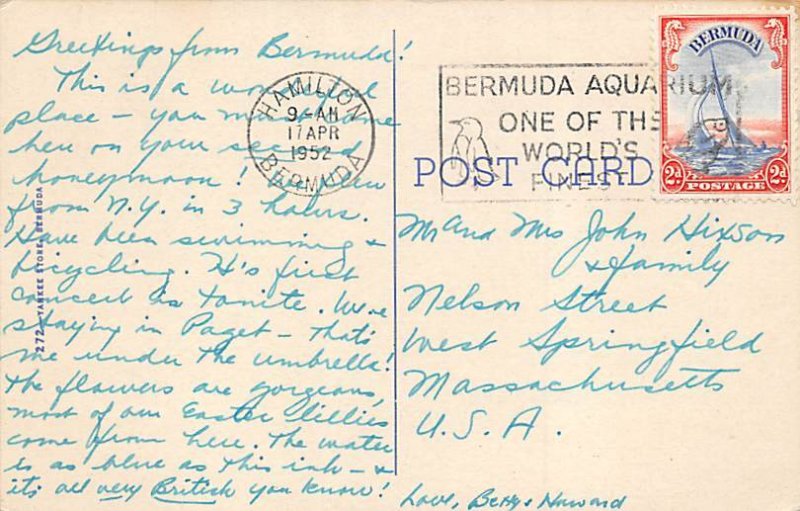 Greetings from Bermuda!
This is a wonderful
place - you must come
here on your second
honeymoon! We flew
from N.Y. in 3 hours.
Have been swimming &
bicycling. H's first
concert is tonite. We're
staying in Paget - that's
me under the umbrella!
The flowers are gorgeous,
most of our Easter lillies
come from here. The water
is as blue as this ink - &
it's all very British you know!
272 - YANKEE STORE, BERMUDA
HAMILTON
9 - AM
17 APR
1952
BERMUDA
BERMUDA AQUARIUM
ONE OF THE
WORLD'S
FINEST
POST CARD
BERMUDA
2d
POSTAGE
2d
Mr and Mrs John Hixson
& family
Nelson Street
West Springfield
Massachusetts
U.S.A.
Love, Betty & Howard